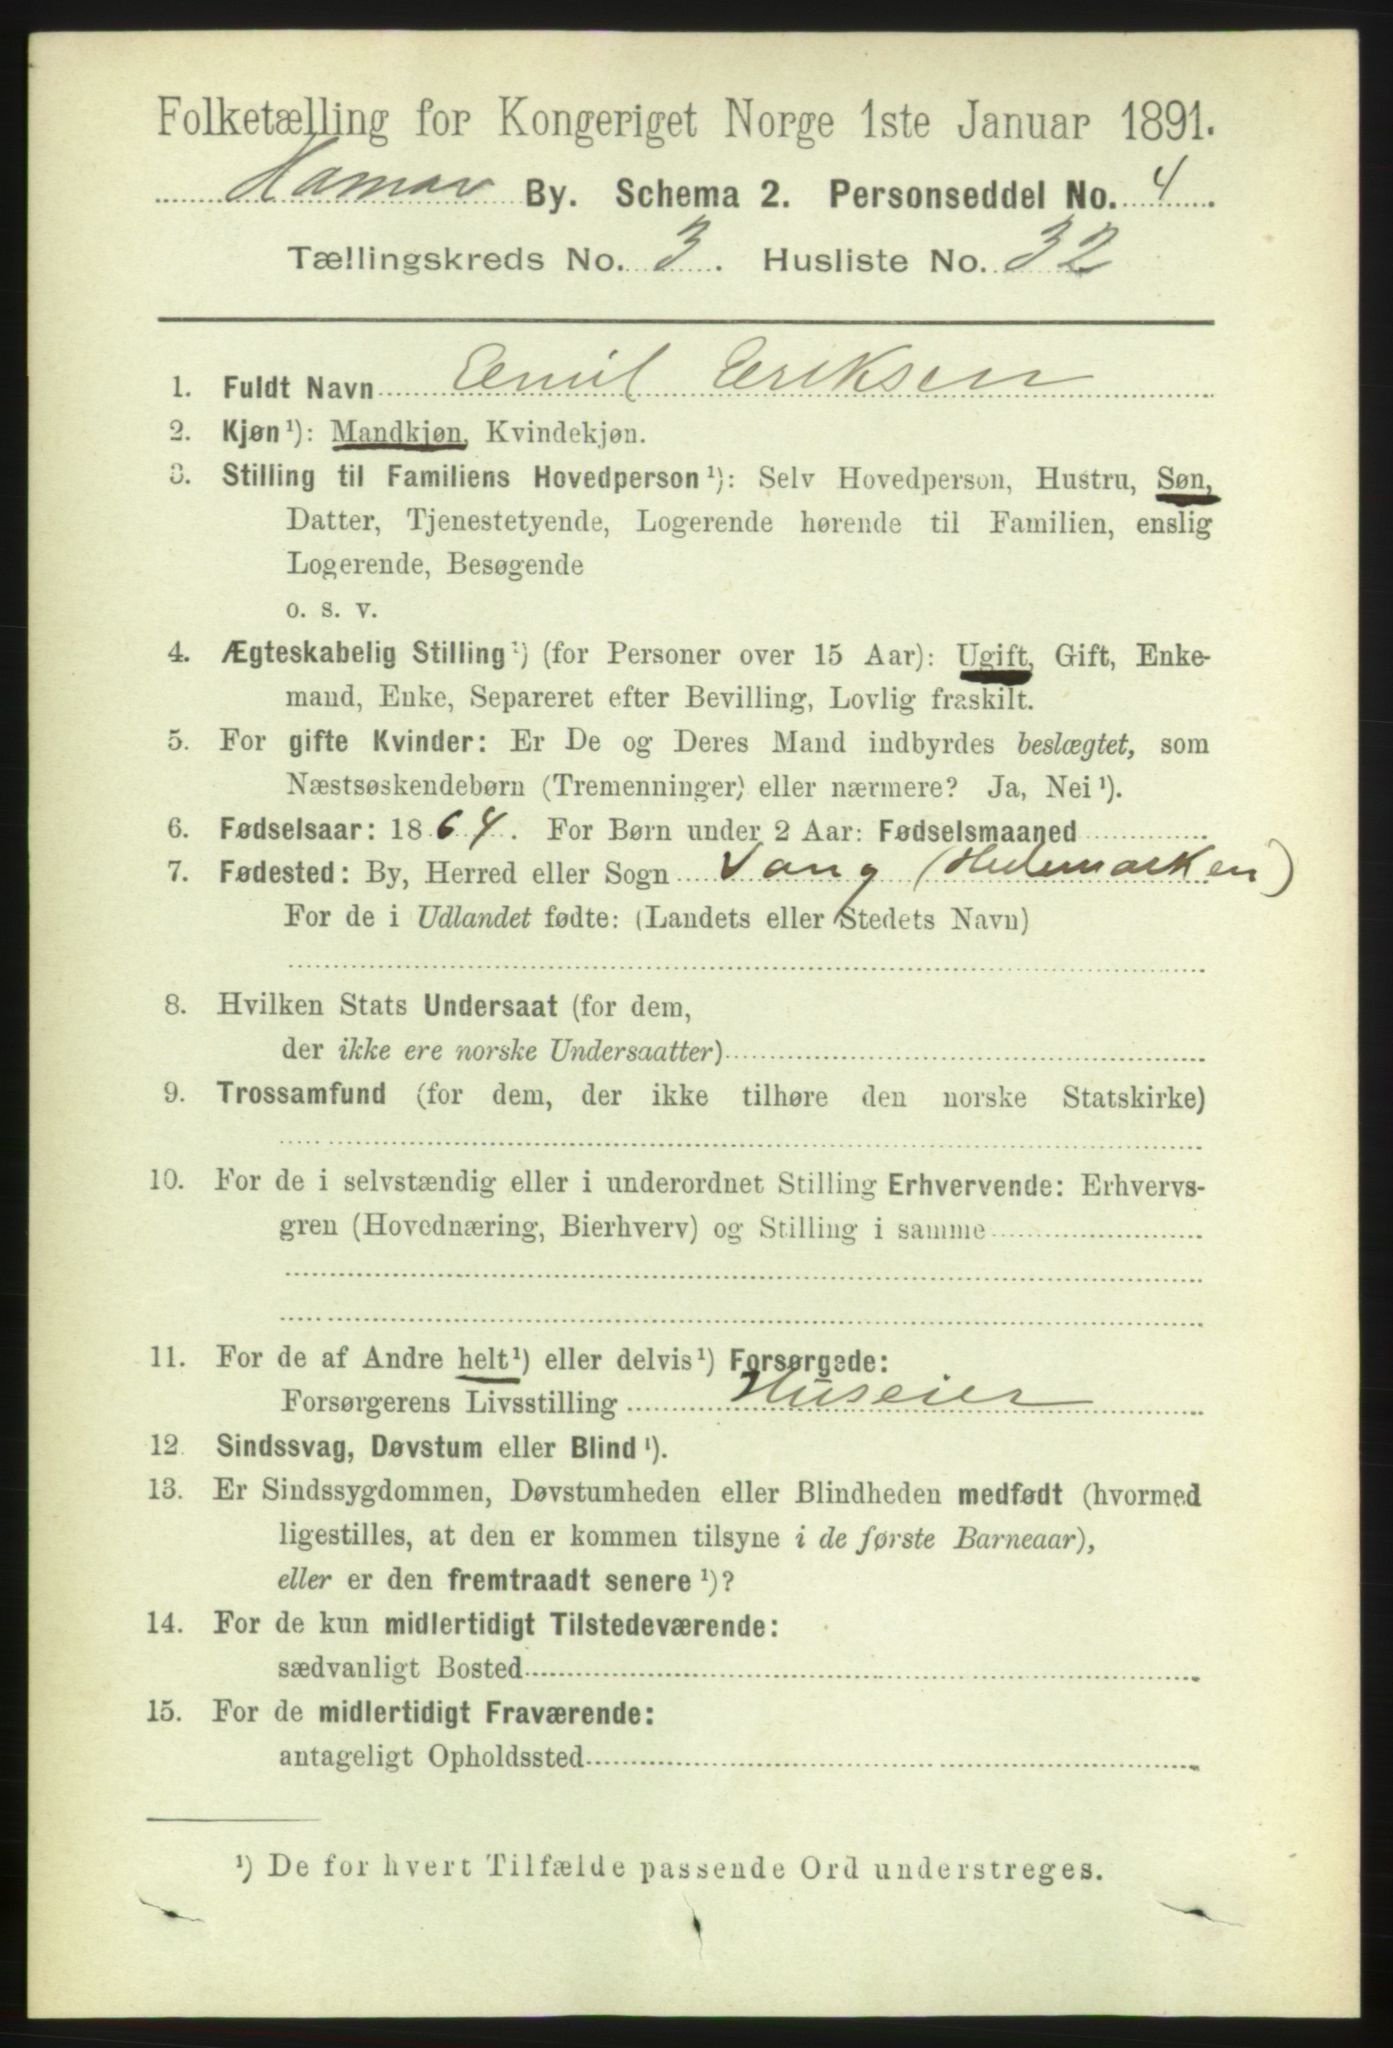 Folketælling for Kongeriget Norge 1ste Januar 1891.
Hamar By. Schema 2. Personseddel No. 4.
Tællingskreds No. 3. Husliste No. 32
1. Fuldt Navn Emil Eriksen
2. Kjøn¹): Mandkjøn, Kvindekjøn.
3. Stilling til Familiens Hovedperson¹): Selv Hovedperson, Hustru, Søn,
Datter, Tjenestetyende, Logerende hørende til Familien, enslig
Logerende, Besøgende
o. s. v.
4. Ægteskabelig Stilling¹) (for Personer over 15 Aar): Ugift, Gift, Enke-
mand, Enke, Separeret efter Bevilling, Lovlig fraskilt.
5. For gifte Kvinder: Er De og Deres Mand indbyrdes beslægtet, som
Næstsøskendebørn (Tremenninger) eller nærmere? Ja, Nei¹).
6. Fødselsaar: 1864. For Børn under 2 Aar: Fødselsmaaned
7. Fødested: By, Herred eller Sogn Vang (Hedemarken)
For de i Udlandet fødte: (Landets eller Stedets Navn)
8. Hvilken Stats Undersaat (for dem,
der ikke ere norske Undersaatter)
9. Trossamfund (for dem, der ikke tilhøre den norske Statskirke)
10. For de i selvstændig eller i underordnet Stilling Erhvervende: Erhvervs-
gren (Hovednæring, Bierhverv) og Stilling i samme
11. For de af Andre helt¹) eller delvis¹) Forsørgede:
Forsørgerens Livsstilling Huseier
12. Sindssvag, Døvstum eller Blind¹).
13. Er Sindssygdommen, Døvstumheden eller Blindheden medfødt (hvormed
ligestilles, at den er kommen tilsyne i de første Barneaar),
eller er den fremtraadt senere¹)?
14. For de kun midlertidigt Tilstedeværende:
sædvanligt Bosted
15. For de midlertidigt Fraværende:
antageligt Opholdssted
¹) De for hvert Tilfælde passende Ord understreges.